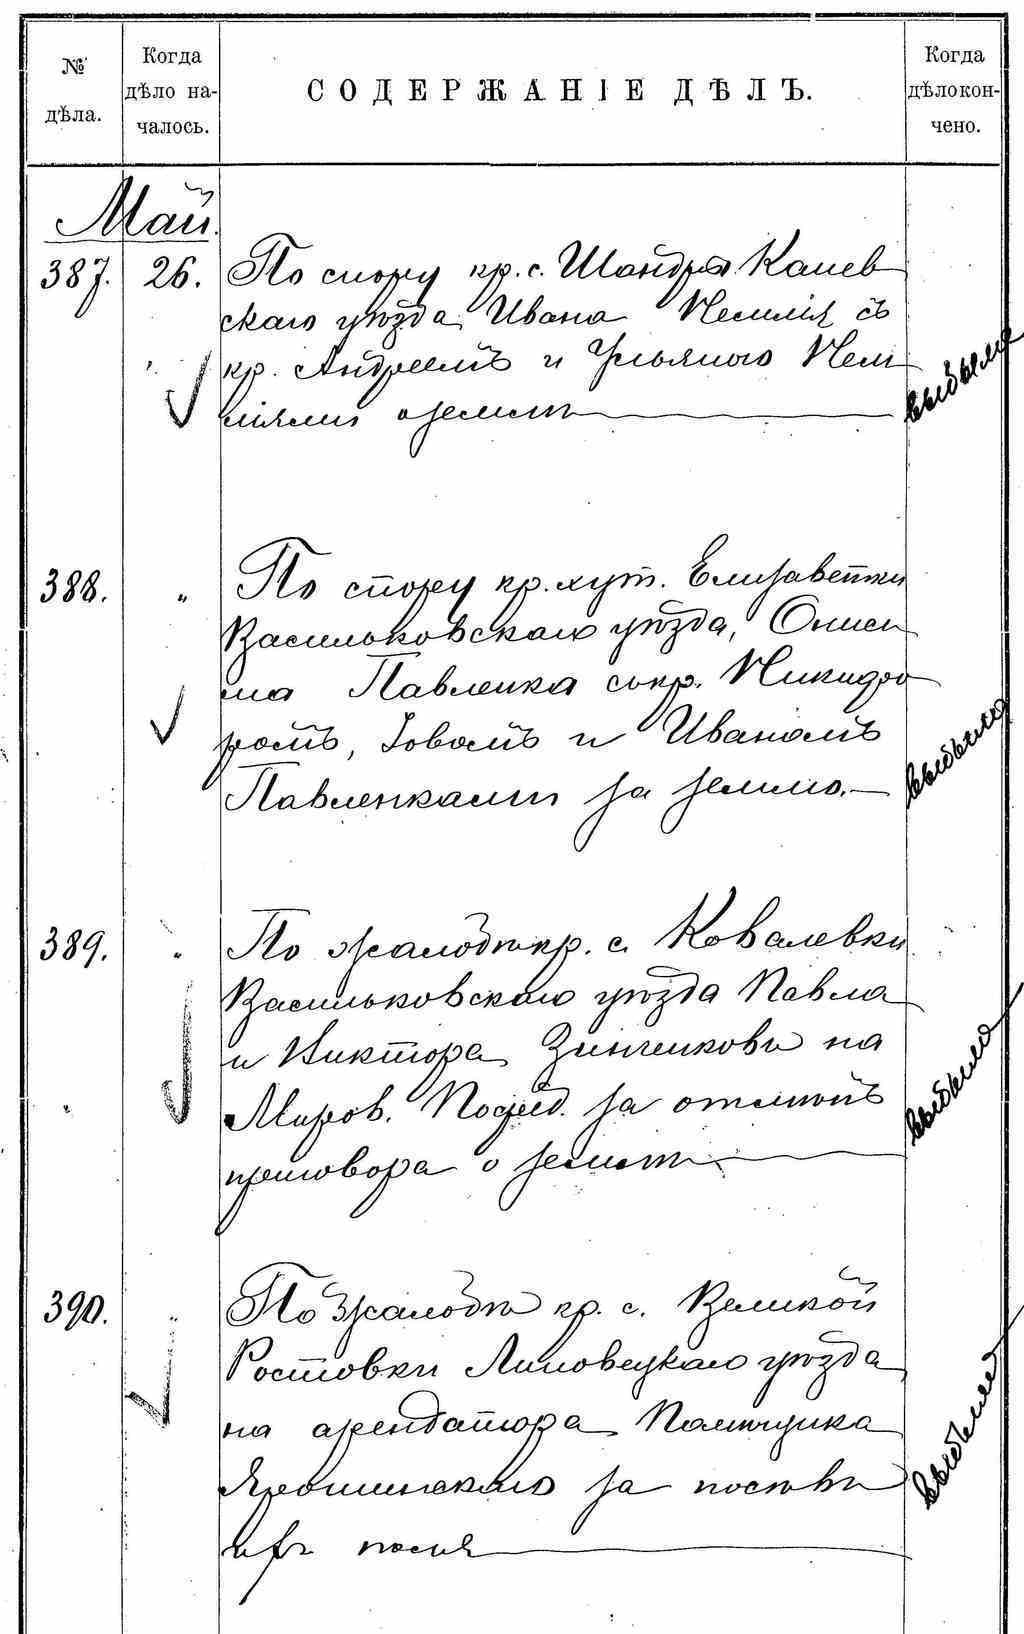 № дѣла.
Когда дѣло на-
чалось.
СОДЕРЖАНІЕ ДѢЛЪ.
Когда дѣло кон-
чено.
Май.
387. 26. По спору кр. с. Шандра Канев
скаго уѣзда Ивана съ
кр. Андреемъ и Ульяною
о землѣ
выбыло
388. „ По спору кр. хут. Елизаветки
Васильковскаго уѣзда,Ониси
ма Павленка съ кр. Никифо
ромъ, Іовомъ и Иваномъ
Павленками за землю.
выбыло
389. „ По жалобѣ кр. с. Ковалевки
Васильковскаго уѣзда Павла
и Виктора Зинченковы на
Миров. Посред. за отмѣной
приговора о землѣ
выбыло
390. „ По жалобѣ кр. с. Великой
Ростовки Липовецкаго уѣзда
на арендатора Помѣщика
Ярошинскаго за посѣвы
ихъ поля
выбыло